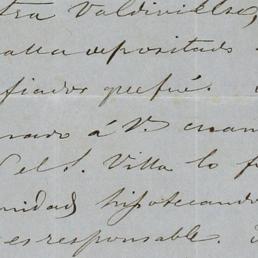 tra Valdivielso,
alla depositado
fiador que fué.
á V. cuan
el S. Villa lo
nidad hipotecando
es responsable.